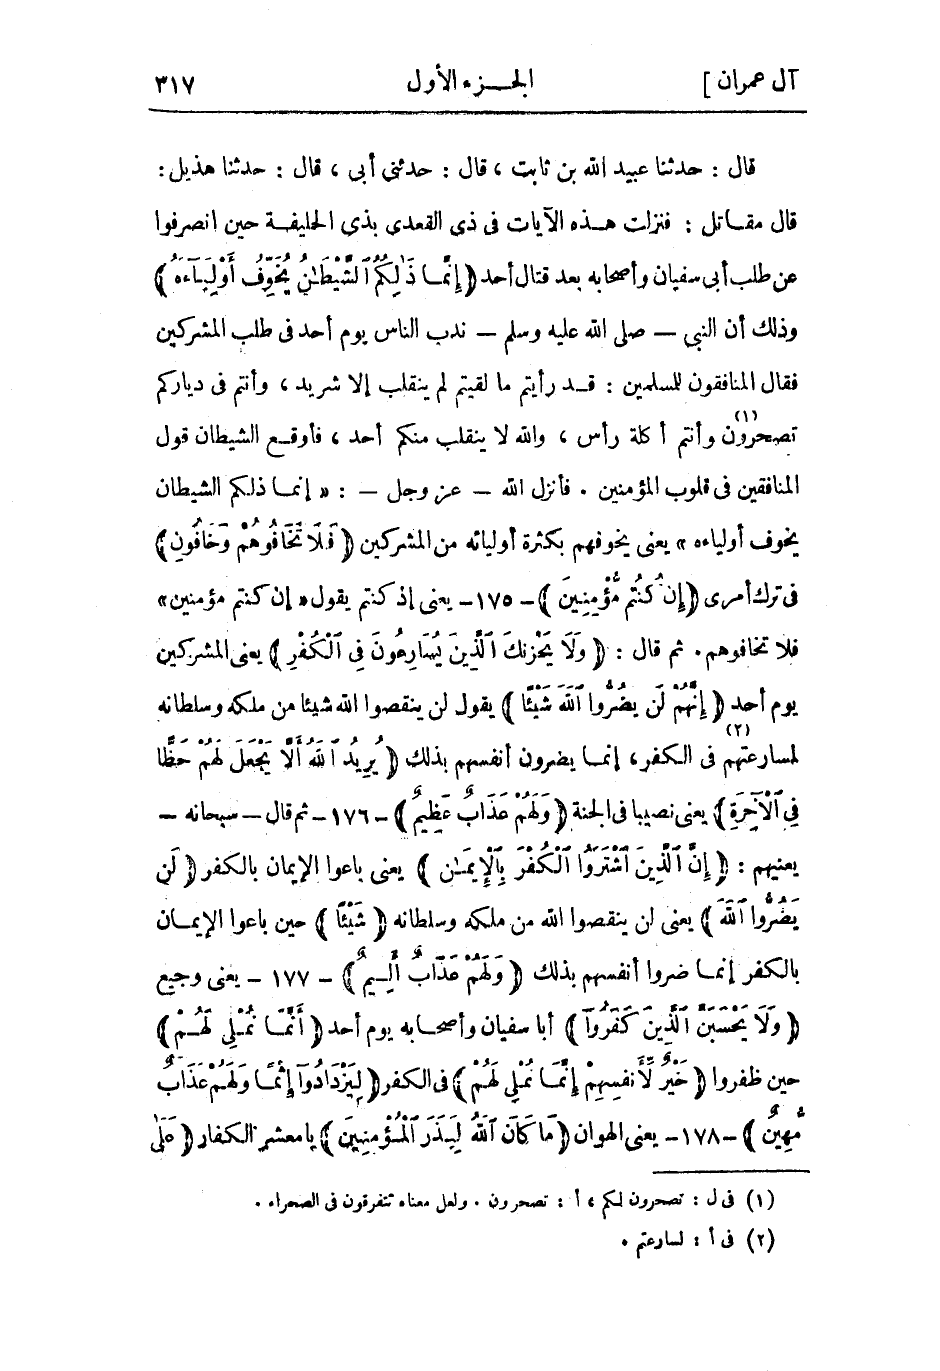 آل عمران ] الجـــزء الأول ٣١٧
قال : حدثنا عبيد الله بن ثابت ، قال : حدثني أبى ، قال : حدثنا هذيل :
قال مقـاتل : فنزلت هـذه الآيات فى ذى القعدى بذى الحليفـة حين انصرفوا
عن طلب أبى سفيان وأصحابه بعد قتال أحد ﴿ إِنَّمَا ذَٰلِكُمُ ٱلشَّيْطَٰنُ يُخَوِّفُ أَوْلِيَآءَهُ ﴾
وذلك أن النبى — صلى الله عليه وسلم — ندب الناس يوم أحد فى طلب المشركين
فقال المنافقون للمسلمين : قـد رأيتم ما لقيتم لم ينقلب إلا شريد ، وأنتم فى دياركم
تصحرون (١) وأنتم أكلة رأس ، والله لا ينقلب منكم أحد ، فأوقـع الشيطان قول
المنافقين فى قلوب المؤمنين . فأنزل الله — عز وجل — : « إنمـا ذلكم الشيطان
يخوف أولياءه » يعنى يخوفهم بكثرة أوليائه من المشركين ﴿ فَلَا تَخَافُوهُمْ وَخَافُونِ ﴾
فى ترك أمرى ﴿ إِن كُنتُم مُّؤْمِنِينَ ﴾ - ١٧٥ - يعنى إذ كنتم يقول « إن كنتم مؤمنين »
فلا تخافوهم . ثم قال : ﴿ وَلَا يَحْزُنكَ ٱلَّذِينَ يُسَارِعُونَ فِى ٱلْكُفْرِ ﴾ يعنى المشركين
يوم أحد ﴿ إِنَّهُمْ لَن يَضُرُّوا ٱللَّهَ شَيْئًا ﴾ يقول لن ينقصوا الله شيئا من ملكه وسلطانه
لمسارعتهم (٢) فى الكفر ، إنمـا يضرون أنفسهم بذلك ﴿ يُرِيدُ ٱللَّهُ أَلَّا يَجْعَلَ لَهُمْ حَظًّا
فِى ٱلْآخِرَةِ ﴾ يعنى نصيبا فى الجنة ﴿ وَلَهُمْ عَذَابٌ عَظِيمٌ ﴾ - ١٧٦ - ثم قال — سبحانه —
يعنيهم : ﴿ إِنَّ ٱلَّذِينَ ٱشْتَرَوُا ٱلْكُفْرَ بِٱلْإِيمَـٰنِ ﴾ يعنى باعوا الإيمان بالكفر ﴿ لَن
يَضُرُّوا ٱللَّهَ ﴾ يعنى لن ينقصوا الله من ملكه وسلطانه ﴿ شَيْئًا ﴾ حين باعوا الإيمـان
بالكفر إنمـا ضروا أنفسهم بذلك ﴿ وَلَهُمْ عَذَابٌ أَلِـيمٌ ﴾ - ١٧٧ - يعنى وجيع
﴿ وَلَا يَحْسَبَنَّ ٱلَّذِينَ كَفَرُوٓا ﴾ أبا سفيان وأصحـابه يوم أحد ﴿ أَنَّمَـا نُمْـلِى لَهُـمْ ﴾
حين ظفروا ﴿ خَيْرٌ لِّأَنفُسِهِمْ إِنَّمَـا نُمْلِى لَهُمْ ﴾ فى الكفر ﴿ لِيَزْدَادُوٓا إِثْمًـا وَلَهُمْ عَذَابٌ
مُّهِينٌ ﴾ - ١٧٨ - يعنى الهوان ﴿ مَا كَانَ ٱللَّهُ لِيَذَرَ ٱلْمُؤْمِنِينَ ﴾ يا معشر الكفار ﴿ عَلَىٰ
(١) فى ل : تصحرون لكم ، أ : تصحرون . ولعل معناه تتفرقون فى الصحراء .
(٢) فى أ : لسارعتم .